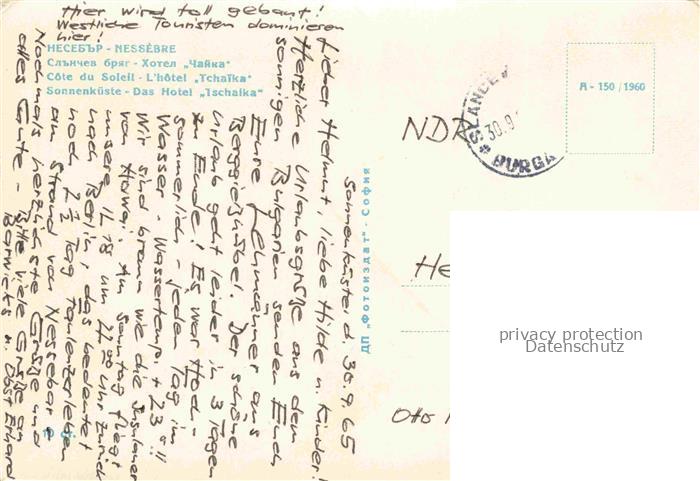 Hier wird toll gebaut!
Westliche Touristen dominieren
hier!
НЕСЕБЪР - NESSÈBRE
Слънчев бряг - Хотел „Чайка“
Côte du Soleil - L'hôtel „Tchaïka“
Sonnenküste - Das Hotel „Tschaika“
Sonnenküste, d. 30.9.65
Lieber Helmut, liebe Hilde u. Kinder!
Herzliche Urlaubsgrüße aus dem
sonnigen Bulgarien senden Euch
Eure Lehmänner aus
Berggießhübel. Der schöne
Urlaub geht leider in 3 Tagen
zu Ende! Es war Hoch-
sommerlich - jeden Tag im
Wasser - Wassertemp. + 23°!!
Wir sind braun wie die Insulaner
von Hawai. Am Sonntag fliegt
unsere IL 18 um 22.00 Uhr zurück
nach Berlin, das bedeutet
noch 2½ Tag faulenzerleben
am Strand von Nessebar
Nochmals herzlichste Grüße und
alles Gute - Bitte viele Grüße an
Barwicks u. Obst Erhard
ДП „Фотоиздат“ - София
A - 150 / 1960
SLANCE
30.9
BURGA
NDR
He
Otto
privacy protection
Datenschutz